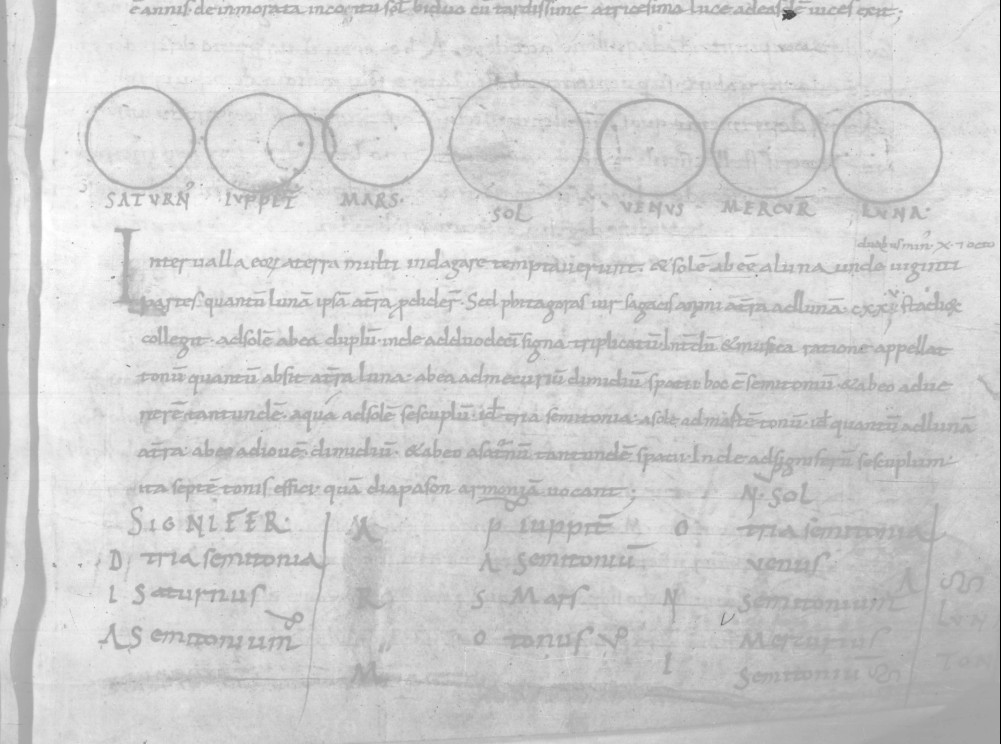 ē annis de inmorata in cognitu sol biduo cū tardissime a tricesima luce ad easdē vices exit;
SATURNꝰ IUPPIT MARS SOL VENUS MERCUR LUNA
duab; min. X. 
Intervalla eoꝝ a terra multi indagare temptaverunt. & solē abēē a luna undeviginti
partes quantū lunā ipsā a t̄ra ꝓdider̄. Sed phitagoras vir sagacis animi a t̄ra ad lunā cxxv stadi
collegit. ad solē ab ea duplū. inde ad duodeci signa triplicatū Int̄dū & musica ratione appellat
tonū quantū absit a t̄ra luna. ab ea ad mecuriū dimidiū spatii hoc ē semitoniū & ab eo ad ve
nerē tantundē. a qua ad solē sescuplū. id tria semitonia. a sole ad martē tonū. id quantū ad lunā
a t̄ra ab eo ad iovē dimidiū. & ab eo a satnū tantundē spatii. Inde ad signiferū sescuplum.
ita septē tonis effici quā diapason armoniā vocant;
N. SOL
SIGNIFER. M P iuppit̄ O tria semitonia
D tria semitonia A semitoniū venus
I Saturnus R S Mars N semitoniū A
LUN
A Semitonium O tonus Mercurius
M I semitoniū TON